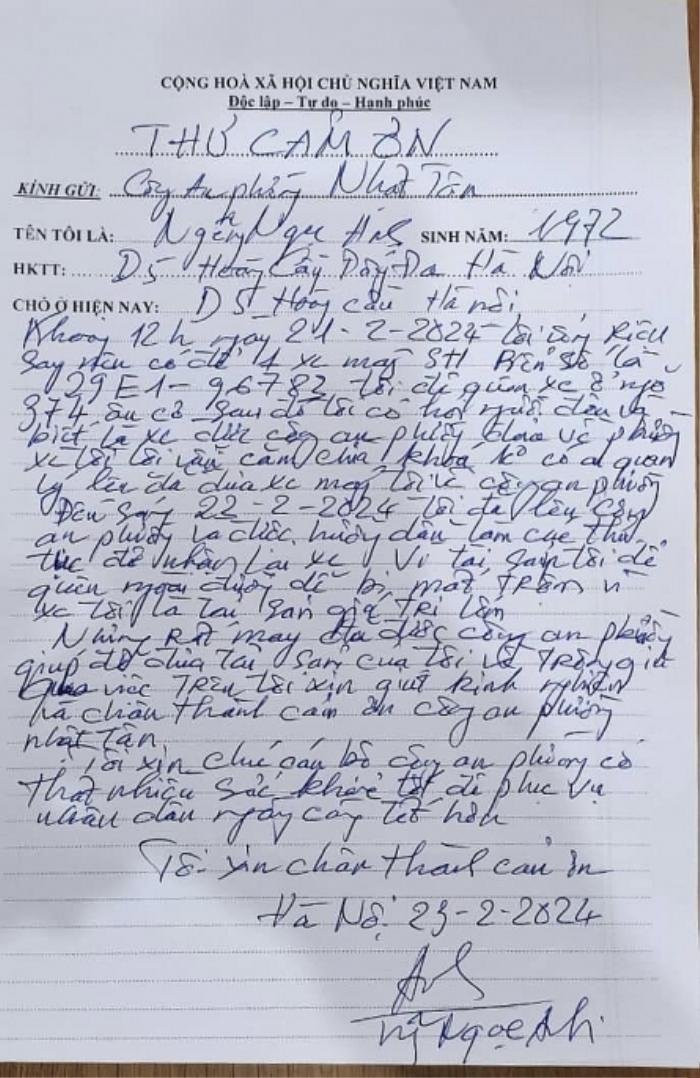 CỘNG HOÀ XÃ HỘI CHỦ NGHĨA VIỆT NAM
Độc lập – Tự do – Hạnh phúc
THƯ CẢM ƠN
KÍNH GỬI: Công An phường Nhật Tân
TÊN TÔI LÀ: Nguyễn Ngọc Anh SINH NĂM: 1972
HKTT: D5 Hoàng Cầu Đống Đa Hà Nội
CHỖ Ở HIỆN NAY: D5 Hoàng cầu Hà nội
Khoảng 12 h ngày 21-2-2024 tôi uống rượu
say nên có để 1 xe máy SH Biển số là
29E1-96782 tôi để quên xe ở ngõ
374 âu cơ sau đó tôi có hỏi người dân và
biết là xe được công an phường đưa về phường
xe tôi tôi vẫn cắm chìa khoá ko có ai quản
lý lên đã đưa xe máy tôi về công an phường
Đến sáng 22-2-2024 tôi đã lên công
an phường và được hướng dẫn làm các thủ
tục để nhận lại xe Vì tài sản tôi để
quên ngoài đường dễ bị mất trộm vì
xe tôi là tài sản giá trị lớn
Nhưng Rất may đã được công an phường
giúp đỡ đưa tài sản của tôi về trông giữ
Qua việc trên tôi xin rút kinh nghiệm
và chân thành cảm ơn công an phường
nhật Tân
Tôi xin chúc cán bộ công an phường có
thật nhiều sức khoẻ tốt để phục vụ
nhân dân ngày càng tốt hơn
Tôi xin chân thành cảm ơn
Hà Nội 23-2-2024
Anh
Ngọc Anh